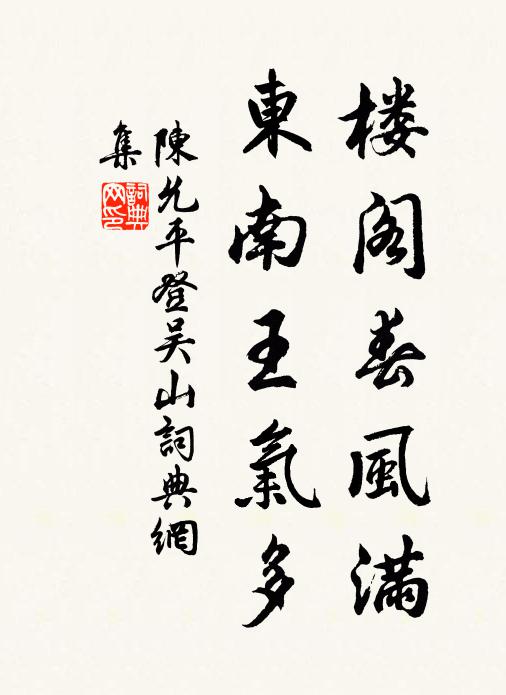 楼阁春風满
東南王氣多
陳允平登吴山詞典網
集
詞典
网印